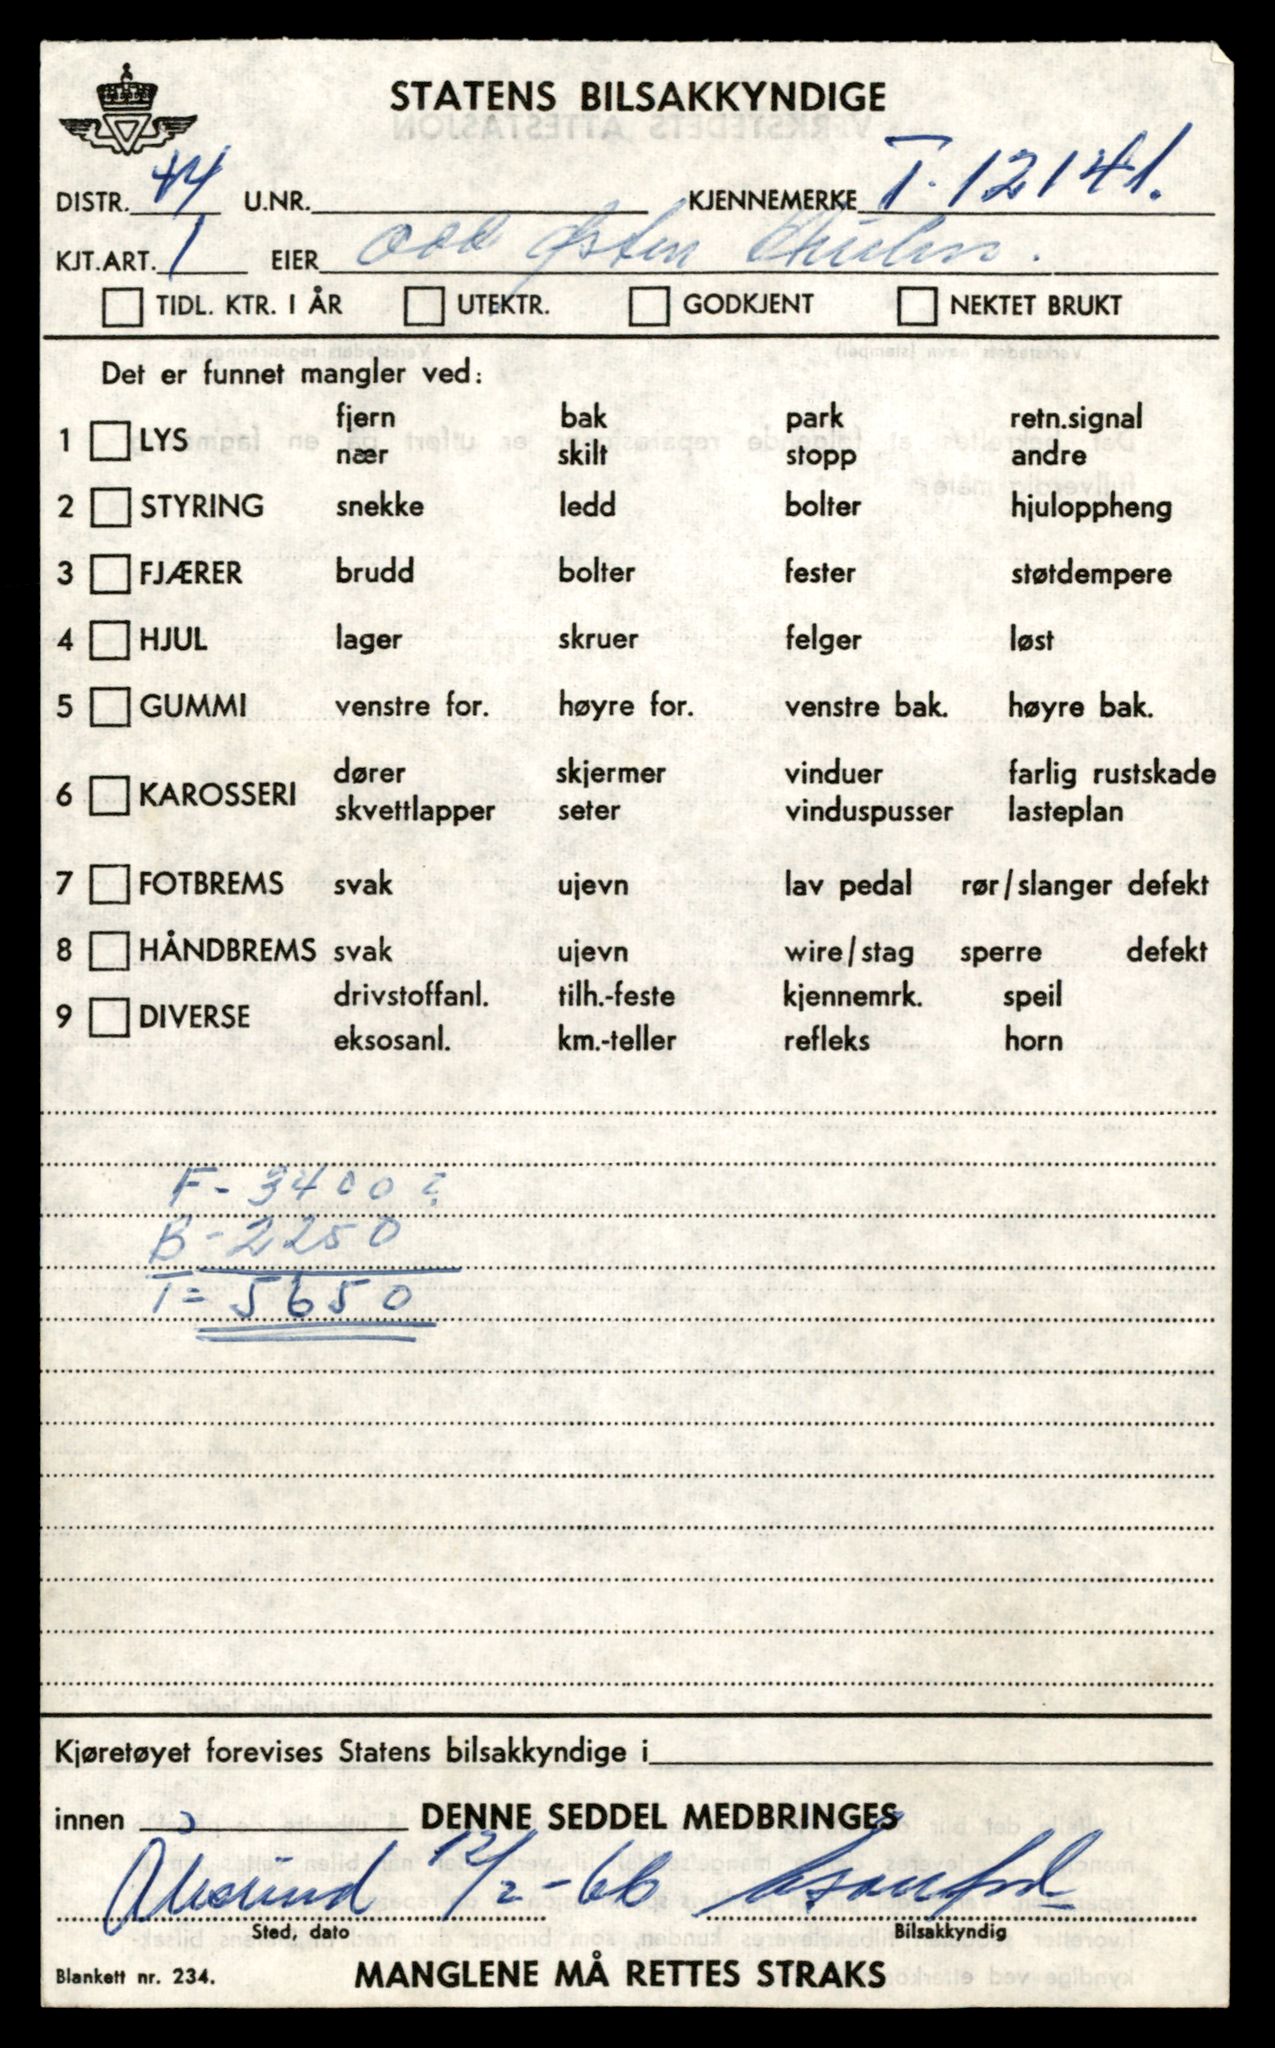 STATENS BILSAKKYNDIGE
DISTR. 44 U.NR. KJENNEMERKE T-12141.
KJT.ART. 1 EIER Odd Østen
TIDL. KTR. I ÅR UTEKTR. GODKJENT NEKTET BRUKT
Det er funnet mangler ved:
fjern bak park retn.signal
1 LYS
nær skilt stopp andre
2 STYRING snekke ledd bolter hjuloppheng
3 FJÆRER brudd bolter fester støtdempere
4 HJUL lager skruer felger løst
5 GUMMI venstre for. høyre for. venstre bak. høyre bak.
dører skjermer vinduer farlig rustskade
6 KAROSSERI
skvettlapper seter vinduspusser lasteplan
7 FOTBREMS svak ujevn lav pedal rør/slanger defekt
8 HÅNDBREMS svak ujevn wire/stag sperre defekt
drivstoffanl. tilh.-feste kjennemrk. speil
9 DIVERSE
eksosanl. km.-teller refleks horn
F- 3400
B- 2250
T= 5650
Kjøretøyet forevises Statens bilsakkyndige i
innen DENNE SEDDEL MEDBRINGES
Ålesund 12/2-66
Sted, dato Bilsakkyndig
Blankett nr. 234. MANGLENE MÅ RETTES STRAKS